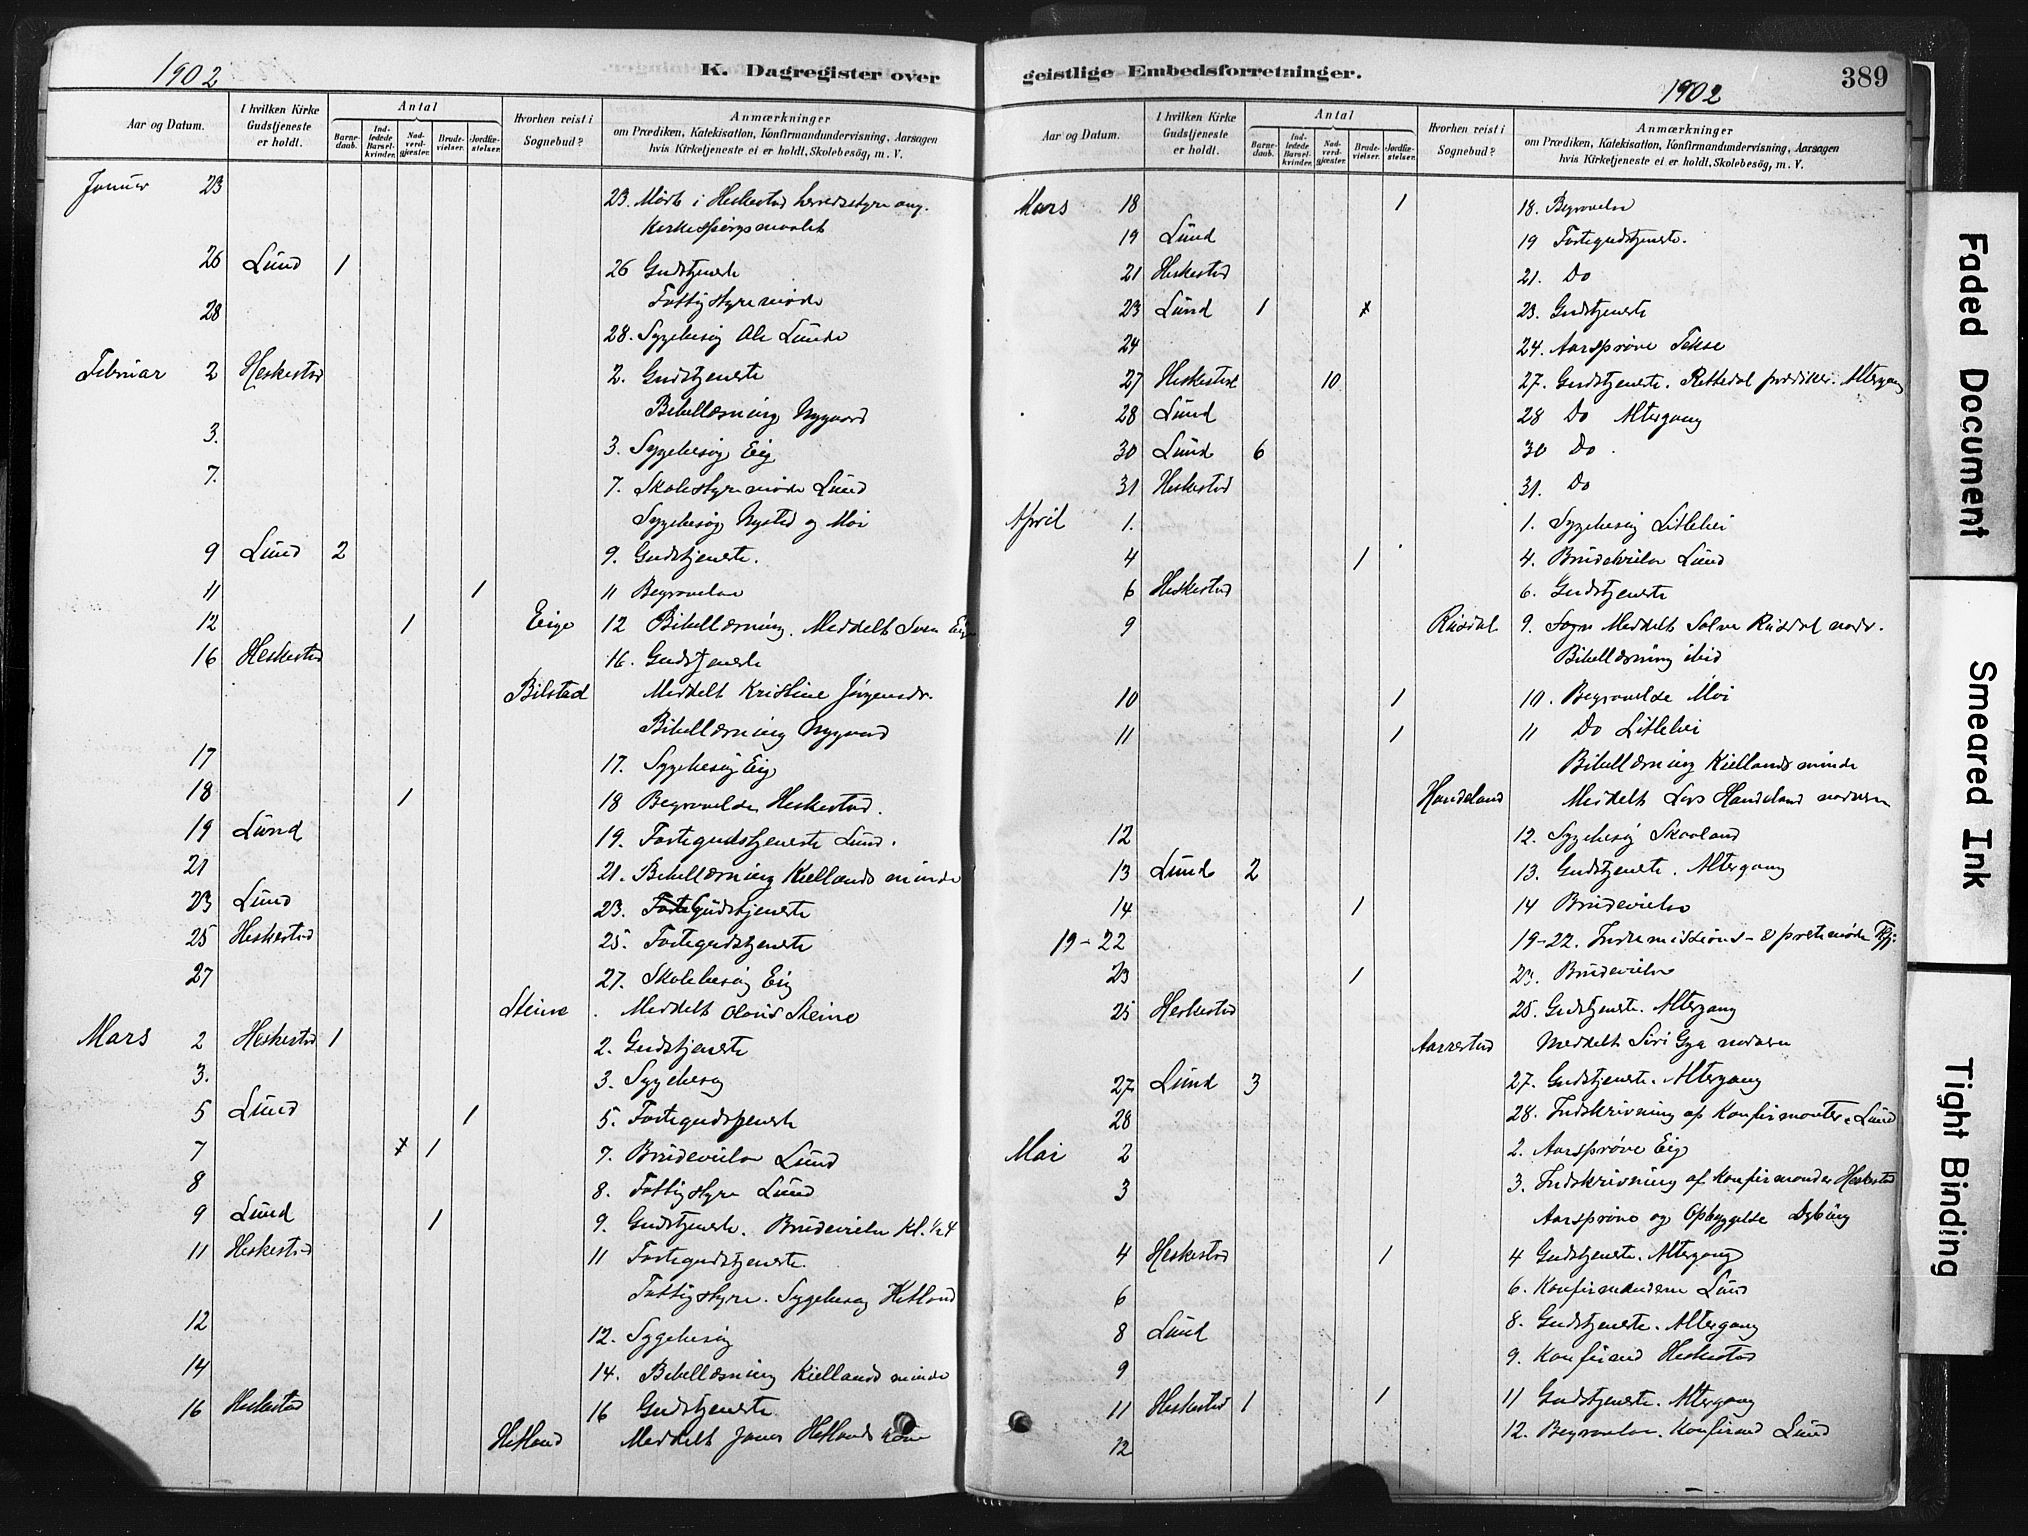 1902
K. Dagregister over
Aar og Datum.
I hvilken Kirke Gudstjeneste er holdt.
Antal
Barnedaab.
Indledede Barselkvinder.
Nadverdgjæster.
Brudevielser.
Jordfæstelser.
Hvorhen reist i Sognebud?
Anmærkninger
om Prædiken, Katekisation, Konfirmandundervisning, Aarsagen
hvis Kirketjeneste ei er holdt, Skolebesög, m. V.
Januar 23 23. Möde i Heskestad herredsstyre ang.
Kirkespörgsmaalet
26 Lund 1 26 Gudstjeneste
Fattigstyremöde
28 28. Sygebesög Ole Lunde
Februar 2 Heskestad 2. Gudstjeneste
Bibellæsning Nygaard
3. 3. Sygebesög Eig
7. 7. Skolestyremöde Lund
Sygebesög Nysted og Moi
9 Lund 2 9. Gudstjeneste.
11 1 11 Begravelse
12 1 Eige 12 Bibellæsning. Meddelt Sven Eige
16 Heskestad 16. Gudstjeneste
Bilstad Meddelt Kristine Jörgensdr.
Bibellæsning Nygaard
17 17. Sygebesög Eig
18 1 18 Begravelse Heskestad.
19 Lund 19. Fastegudstjeneste Lund.
21 21. Bibellæsning Kiellands minde
23 Lund 23. Gudstjeneste
25 Heskestad 25. Fastegudstjeneste
27 27. Skolebesög Eig
Steine . Meddelt Olaus Steine
Mars 2 Heskestad 1 2. Gudstjeneste
3. 3. Sygebesög
5 Lund 1 5. Fastegudstjeneste
7 1 7. Brudevielse Lund
8 8. Fattigstyre Lund
9 Lund 1 9. Gudstjeneste. Brudevielse Kl. ½4
11 Heskestad 11 Fastegudstjeneste.
Fattigstyre. Sygebesög Hetland
12 12. Sygebesög
14 14. Bibellæsning Kiellands minde
16 Heskestad 16 Gudstjeneste
Hetland Meddelt Jonas Hetlands kone
geistlige Embedsforretninger.
1902
389
Aar og Datum.
I hvilken Kirke Gudstjeneste er holdt.
Antal
Barnedaab.
Indledede Barselkvinder.
Nadverdgjæster.
Brudevielser.
Jordfæstelser.
Hvorhen reist i Sognebud?
Anmærkninger
om Prædiken, Katekisation, Konfirmandundervisning, Aarsagen
hvis Kirketjeneste ei er holdt, Skolebesög, m. V.
Mars 18 1 18. Begravelse
19 Lund 19 Fastegudstjeneste.
21 Heskestad 21. Do
23 Lund 1 23. Gudstjeneste
24 24. Aarspröve Tekse
27 Heskestad 10 27. Gudstjeneste. Rettedal prædiker. Altergang
28 Lund 28 Do Altergang
30 Lund 6 30 Do.
31 Heskestad 31. Do
April 1. 1. Sygebesög Litlehei
4 1 4. Brudevielse Lund
6 Heskestad 6. Gudstjeneste
9 Rusdal 9. Sogn Meddelt Salve Rusdal nadv.
Bibellæsning ibid
10 1 10. Begravelse Moi
11 1 11 Do Litlehei
Bibellæsning Kiellands minde
Handeland Meddelt Lars Handeland nadvern
12 12. Sygebesög Skaaland
13 Lund 2 13. Gudstjeneste. Altergang
14 1 14 Brudevielse
19-22 19-22. Indremissions- & prestemöde
23 1 23. Brudevielse
25 Heskestad 25. Gudstjeneste. Altergang
Aarrestad Meddelt Siri Gya nadvern
27 Lund 3 27. Gudstjeneste. Altergang
28 28. Indskrivning af Konfirmanter i Lund
Mai 2 2. Aarspröve Eig
3 3. Indskrivning af Konfirmander Heskestad
Aarspröve og Opbyggelse Dybing
4 Heskestad 1 4 Gudstjeneste. Altergang
6 6. Konfirmanderne Lund
8 Lund 8. Gudstjeneste. Altergang
9 9. Konfirmand Heskestad
11 Heskestad 1 1 11 Gudstjeneste. Altergang
12 12. Begravelse. Konfirmand Lund
Faded Document
Smeared Ink
Tight Binding